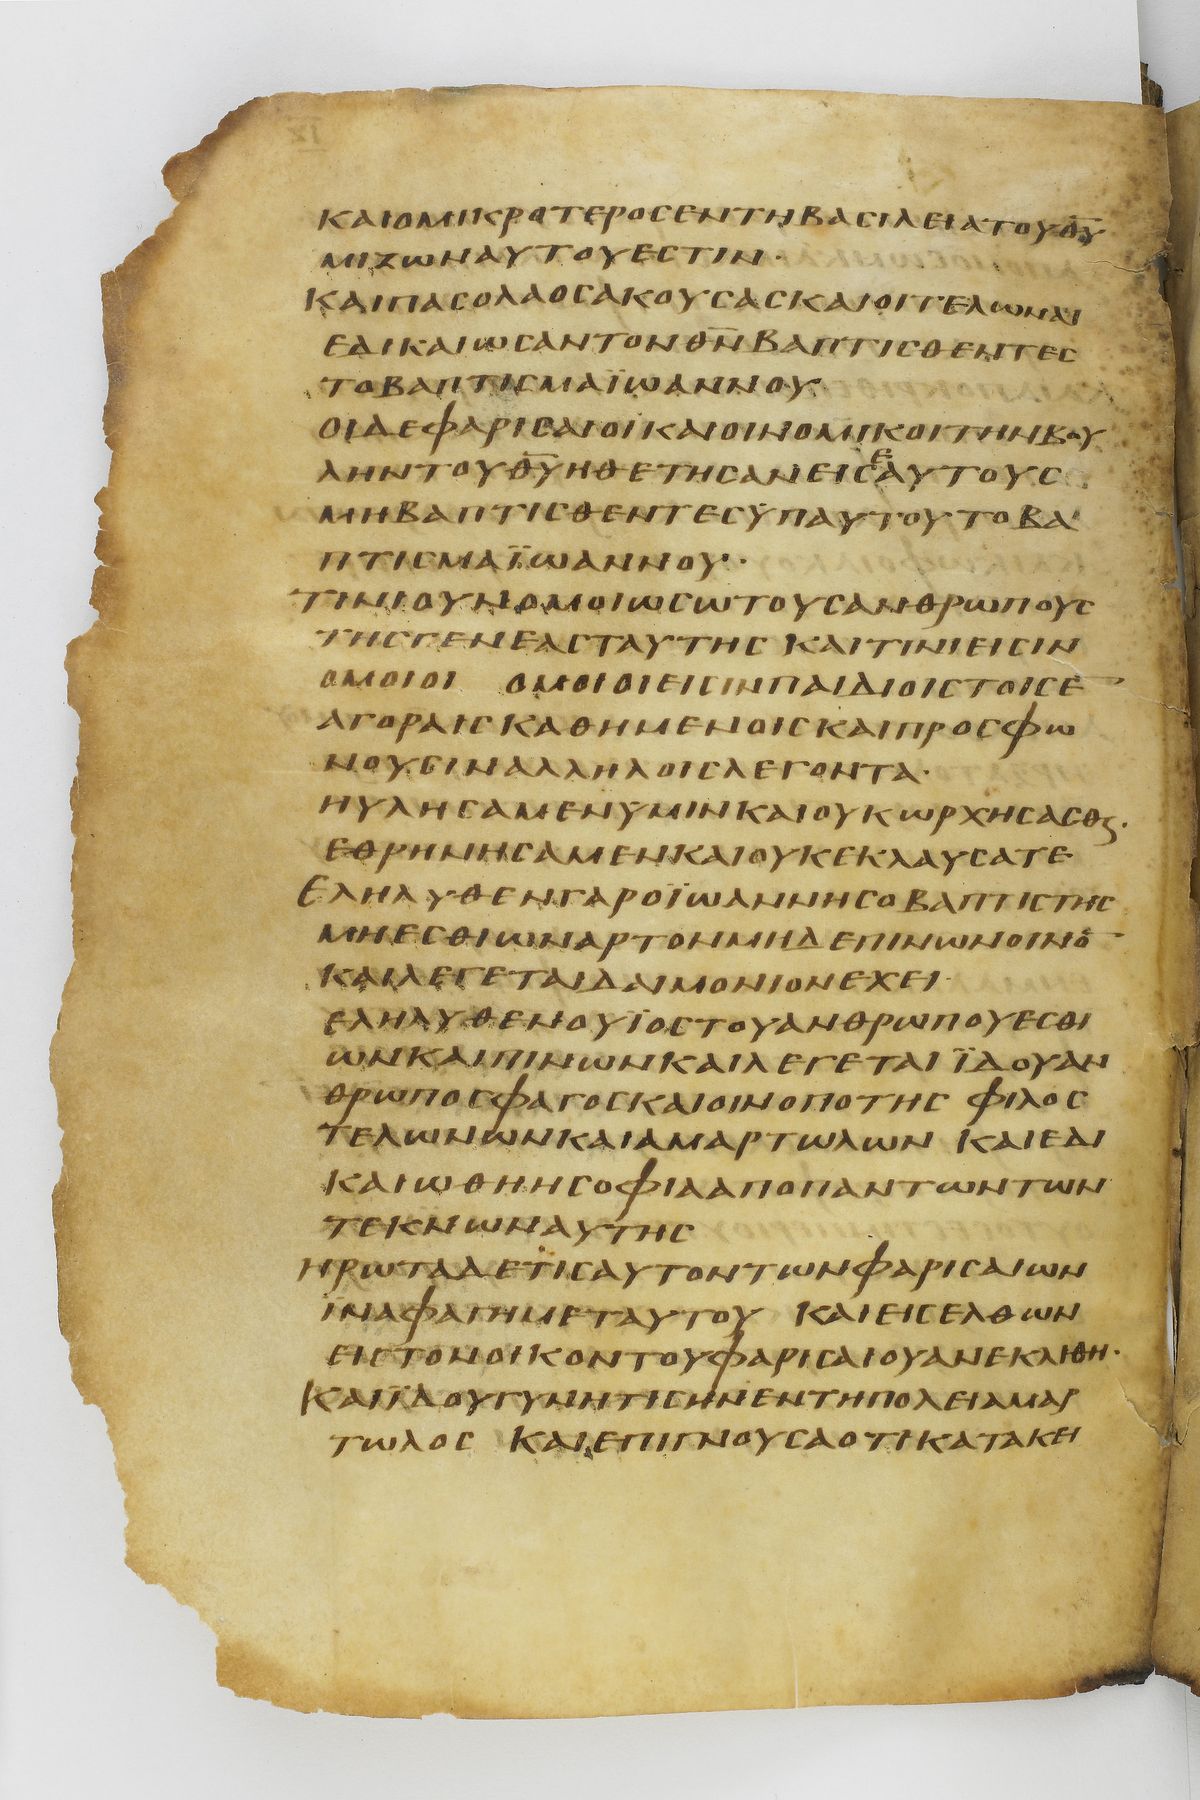 ΚΑΙΟΜΙΚΡΟΤΕΡΟϹΕΝΤΗΒΑϹΙΛΕΙΑΤΟΥΘ̅Υ̅
ΜΙΖΩΝΑΥΤΟΥΕϹΤΙΝ·
ΚΑΙΠΑϹΟΛΑΟϹΑΚΟΥϹΑϹΚΑΙΟΙΤΕΛΩΝΑΙ
ΕΔΙΚΑΙΩϹΑΝΤΟΝΘ̅Ν̅ΒΑΠΤΙϹΘΕΝΤΕϹ
ΤΟΒΑΠΤΙϹΜΑΪΩΑΝΝΟΥ
ΟΙΔΕΦΑΡΙϹΑΙΟΙΚΑΙΟΙΝΟΜΙΚΟΙΤΗΝΒΟΥ
ΛΗΝΤΟΥΘ̅Υ̅ΗΘΕΤΗϹΑΝΕΙϹΕΑΥΤΟΥϹ
ΜΗΒΑΠΤΙϹΘΕΝΤΕϹΫΠΑΥΤΟΥΤΟΒΑ
ΠΤΙϹΜΑΪΩΑΝΝΟΥ·
ΤΙΝΙΟΥΝΟΜΟΙΩϹΩΤΟΥϹΑΝΘΡΩΠΟΥϹ
ΤΗϹΓΕΝΕΑϹΤΑΥΤΗϹ ΚΑΙΤΙΝΙΕΙϹΙΝ
ΟΜΟΙΟΙ ΟΜΟΙΟΙΕΙϹΙΝΠΑΙΔΙΟΙϹΤΟΙϹΕ̅
ΑΓΟΡΑΙϹΚΑΘΗΜΕΝΟΙϹΚΑΙΠΡΟϹΦΩ
ΝΟΥϹΙΝΑΛΛΗΛΟΙϹΛΕΓΟΝΤΑ·
ΗΥΛΗϹΑΜΕΝΥΜΙΝΚΑΙΟΥΚΩΡΧΗϹΑϹΘϗ·
ΕΘΡΗΝΗϹΑΜΕΝΚΑΙΟΥΚΕΚΛΑΥϹΑΤΕ
ΕΛΗΛΥΘΕΝΓΑΡΟΪΩΑΝΝΗϹΟΒΑΠΤΙϹΤΗϹ
ΜΗΕϹΘΙΩΝΑΡΤΟΝΜΗΔΕΠΙΝΩΝΟΙΝΟ̅
ΚΑΙΛΕΓΕΤΑΙΔΑΙΜΟΝΙΟΝΕΧΕΙ·
ΕΛΗΛΥΘΕΝΟΥΪΟϹΤΟΥΑΝΘΡΩΠΟΥΕϹΘΙ
ΩΝΚΑΙΠΙΝΩΝΚΑΙΛΕΓΕΤΑΙ ΪΔΟΥΑΝ
ΘΡΩΠΟϹΦΑΓΟϹΚΑΙΟΙΝΟΠΟΤΗϹ ΦΙΛΟϹ
ΤΕΛΩΝΩΝΚΑΙΑΜΑΡΤΩΛΩΝ ΚΑΙΕΔΙ
ΚΑΙΩΘΗΗϹΟΦΙΑΑΠΟΠΑΝΤΩΝΤΩΝ
ΤΕΚΝΩΝΑΥΤΗϹ
ΗΡΩΤΑΔΕΤΙϹΑΥΤΟΝΤΩΝΦΑΡΙϹΑΙΩΝ
ΪΝΑΦΑΓΗΜΕΤΑΥΤΟΥ ΚΑΙΕΙϹΕΛΘΩΝ
ΕΙϹΤΟΝΟΙΚΟΝΤΟΥΦΑΡΙϹΑΙΟΥΑΝΕΚΛΙΘΗ·
ΚΑΙΪΔΟΥΓΥΝΗΤΙϹΗΝΕΝΤΗΠΟΛΕΙΑΜΑΡ
ΤΩΛΟϹ ΚΑΙΕΠΙΓΝΟΥϹΑΟΤΙΚΑΤΑΚΕΙ